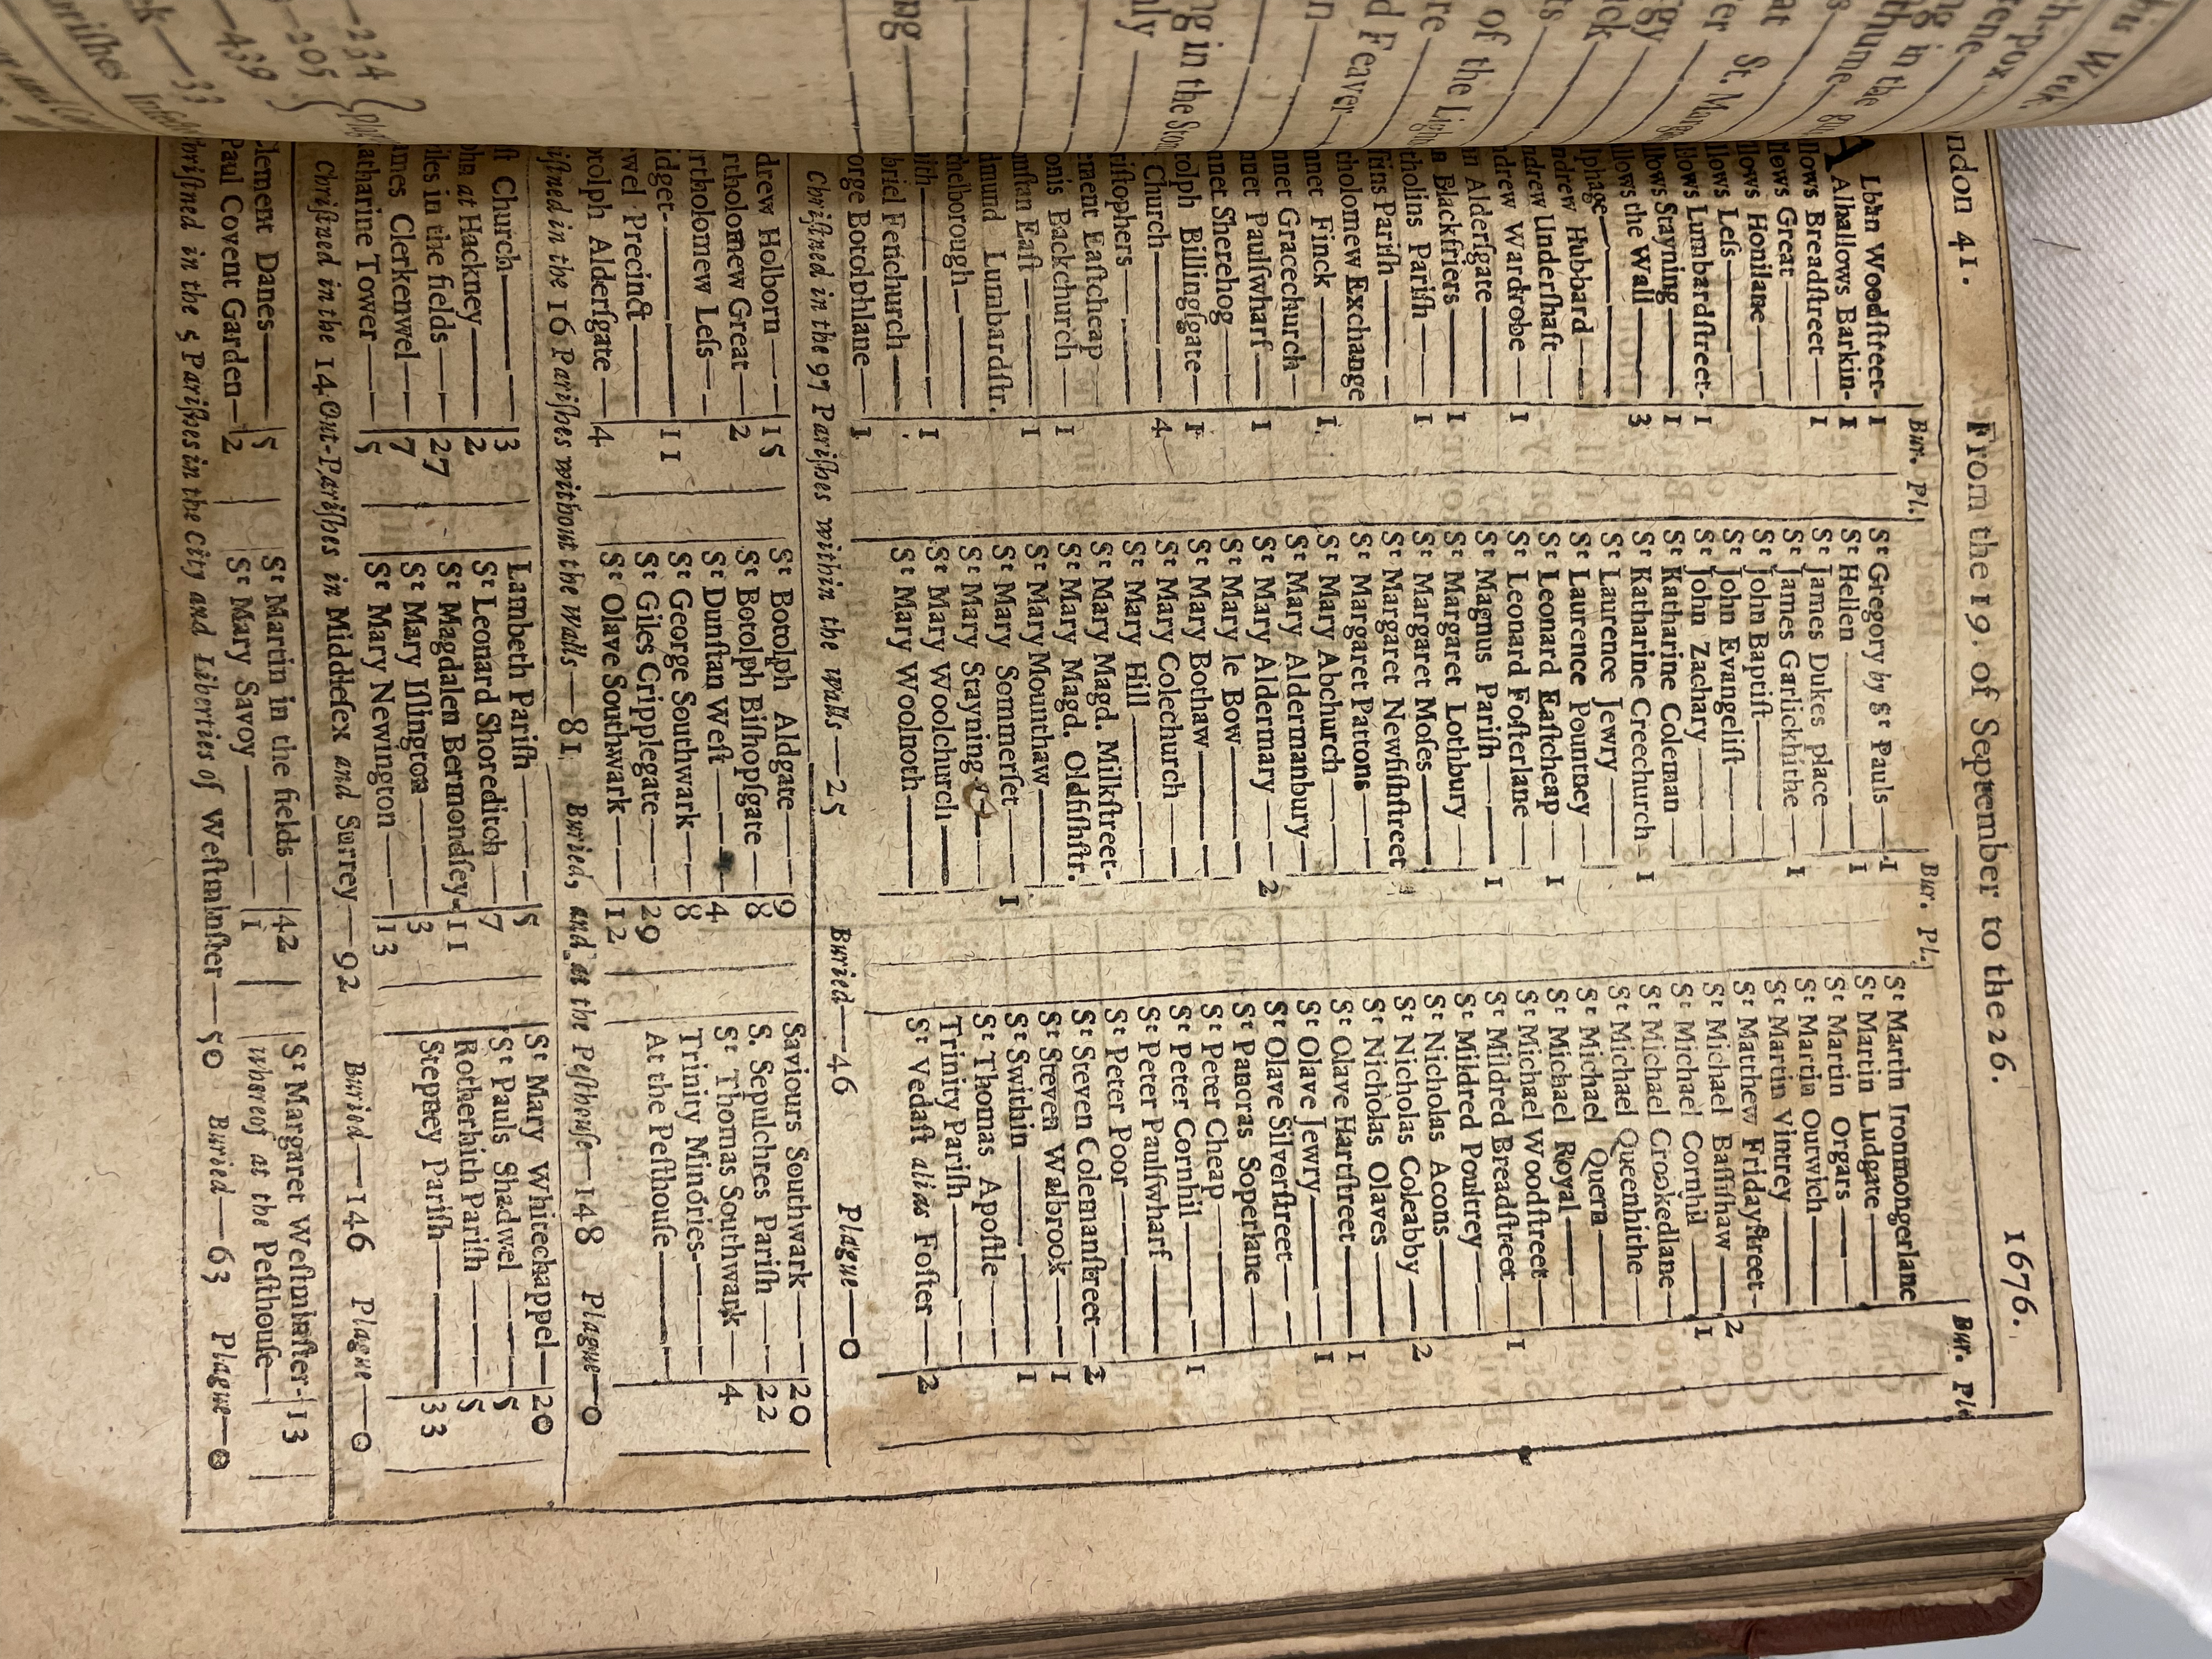 ndon 41. From the 19. of September to the 26. 1676.
Bur. Pl. Bur. Pl. Bur. Pl.
A Lban Woodſtreet- 1
Alhallows Barkin- 1
llows Breadſtreet— 1
llows Great——
llows Honilane——
llows Leſs———
llows Lumbardſtreet- 1
llows Stayning—— 1
llows the Wall—— 3
lphage———
ndrew Hubbard——
ndrew Underſhaft—
ndrew Wardrobe— 1
n Alderſgate——
n Blackfriers—— 1
tholins Pariſh—— 1
ſins Pariſh———
tholomew Exchange
nnet Finck—— 1
nnet Gracechurch—
nnet Paulſwharf— 1
nnet Sherehog——
tolph Billingſgate— 1
Church——— 4
riſtophers———
ement Eaſtcheap
onis Backchurch— 1
nſtan Eaſt—— 1
dmund Lumbardſtr.
thelborough——
ith——— 1
briel Fenchurch——
orge Botolphlane— 1
St Gregory by St Pauls— 1
St Hellen——— 1
St James Dukes place—
St James Garlickhithe— 1
St John Baptiſt——
St John Evangeliſt—
St John Zachary——
St Katharine Coleman—
St Katharine Creechurch- 1
St Laurence Jewry——
St Laurence Pountney—
St Leonard Eaſtcheap— 1
St Leonard Foſterlane—
St Magnus Pariſh—— 1
St Margaret Lothbury—
St Margaret Moſes——
St Margaret Newfiſhſtreet
St Margaret Pattons——
St Mary Abchurch——
St Mary Aldermanbury—
St Mary Aldermary—— 2
St Mary le Bow———
St Mary Bothaw——
St Mary Colechurch——
St Mary Hill———
St Mary Magd. Milkſtreet-
St Mary Magd. Oldfiſhſtr.
St Mary Mounthaw——
St Mary Sommerſet—— 1
St Mary Stayning——
St Mary Woolchurch——
St Mary Woolnoth——
St Martin Ironmongerlane
St Martin Ludgate——
St Martin Orgars——
St Martin Outwich——
St Martin Vintrey——
St Matthew Fridayſtreet-
St Michael Baſſiſhaw— 2
St Michael Cornhil—— 1
St Michael Crookedlane—
St Michael Queenhithe—
St Michael Quern——
St Michael Royal——
St Michael Woodſtreet—
St Mildred Breadſtreet— 1
St Mildred Poultrey——
St Nicholas Acons——
St Nicholas Coleabby— 2
St Nicholas Olaves——
St Olave Hartſtreet—— 1
St Olave Jewry—— 1
St Olave Silverſtreet——
St Pancras Soperlane——
St Peter Cheap———
St Peter Cornhil—— 1
St Peter Paulſwharf——
St Peter Poor———
St Steven Colemanſtreet— 2
St Steven Walbrook—— 1
St Swithin——— 1
St Thomas Apoſtle——
Trinity Pariſh———
St Vedaſt alias Foſter— 2
Chriſtned in the 97 Pariſhes within the walls—25 Buried—46 Plague—0
drew Holborn—— 15
rtholomew Great— 2
rtholomew Leſs——
idger——— 11
wel Precinct——
otolph Alderſgate— 4
St Botolph Aldgate—— 9
St Botolph Biſhopſgate— 8
St Dunſtan Weſt—— 4
St George Southwark— 8
St Giles Cripplegate—— 29
St Olave Southwark—— 12
Saviours Southwark—— 20
S. Sepulchres Pariſh—— 22
St Thomas Southwark— 4
Trinity Minories——
At the Peſthouſe——
iſtned in the 16 Pariſhes without the Walls—81 Buried, and at the Peſthouſe—148 Plague—0
ſt Church——— 3
ohn at Hackney—— 2
iles in the fields—— 27
ames Clerkenwel— 7
atharine Tower—— 5
Lambeth Pariſh——— 5
St Leonard Shoreditch— 7
St Magdalen Bermondſey- 11
St Mary Iſlington—— 3
St Mary Newington—— 13
St Mary Whitechappel— 20
St Pauls Shadwel—— 5
Rotherhith Pariſh—— 5
Stepney Pariſh—— 33
Chriſtned in the 14 Out-Pariſhes in Middleſex and Surrey—92 Buried—146 Plague—0
Clement Danes—— 5
Paul Covent Garden— 2
St Martin in the fields— 42
St Mary Savoy—— 1
St Margaret Weſtminſter- 13
whereof at the Peſthouſe—
hriſtned in the 5 Pariſhes in the City and Liberties of Weſtminſter—50 Buried—63 Plague—0
his Week.
h-pox
tene
ng in the
thume
at St. Marga
er
rgy
ick
ts
of the Ligh
re
d Feaver
n
ng in the Stom
nly
ng
—234
—205
—439
ek—33